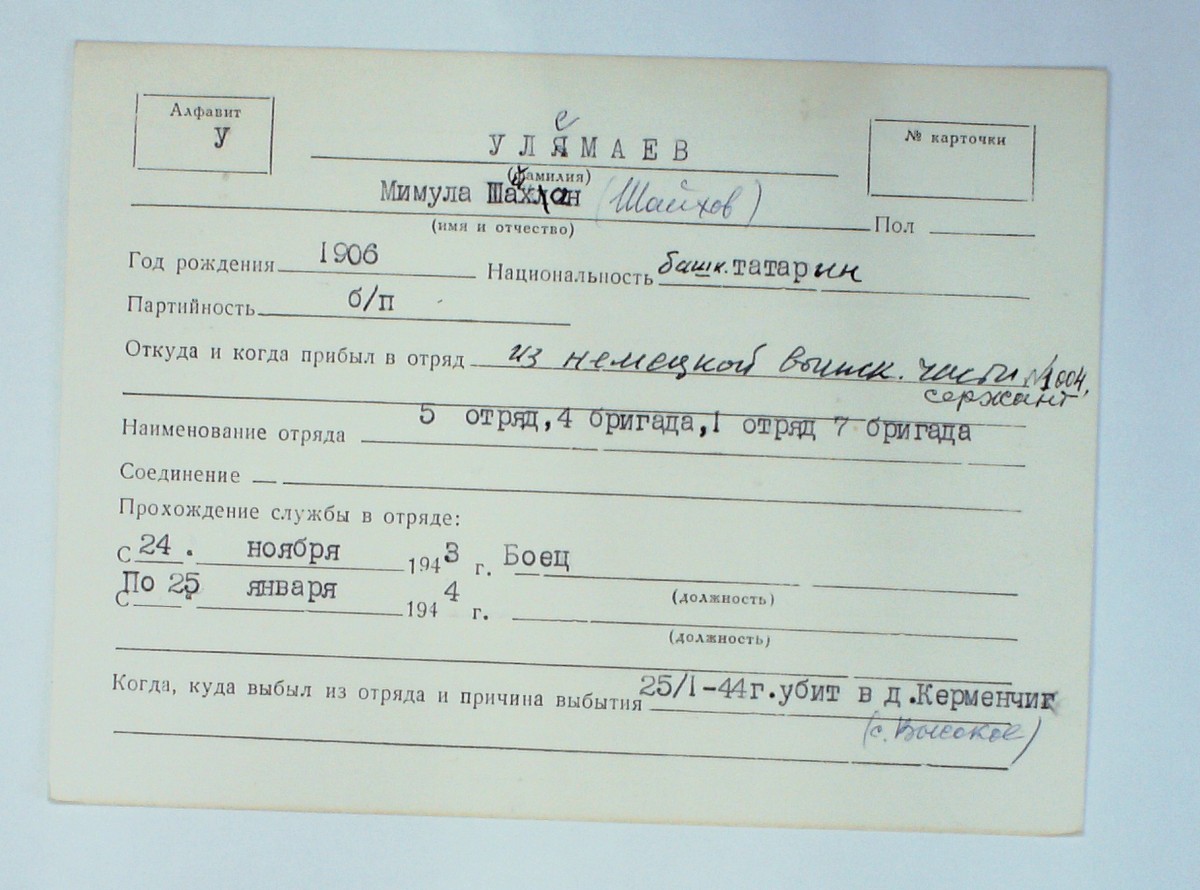 Алфавит
У
№ карточки
е
УЛЯМАЕВ
(фамилия)
Мимула (Шайхов)
(имя и отчество)
Пол
Год рождения 1906 Национальность башк. татарин
Партийность б/п
Откуда и когда прибыл в отряд из немецкой части №1004,
сержант
Наименование отряда 5 отряд,4 бригада,1 отряд 7 бригада
Соединение
Прохождение службы в отряде:
С 24. ноября 1943 г. Боец
(должность)
По 25 января
С 1944 г.
(должность)
Когда, куда выбыл из отряда и причина выбытия 25/1-44г.убит в д.Керменчик
(с. Высокое)